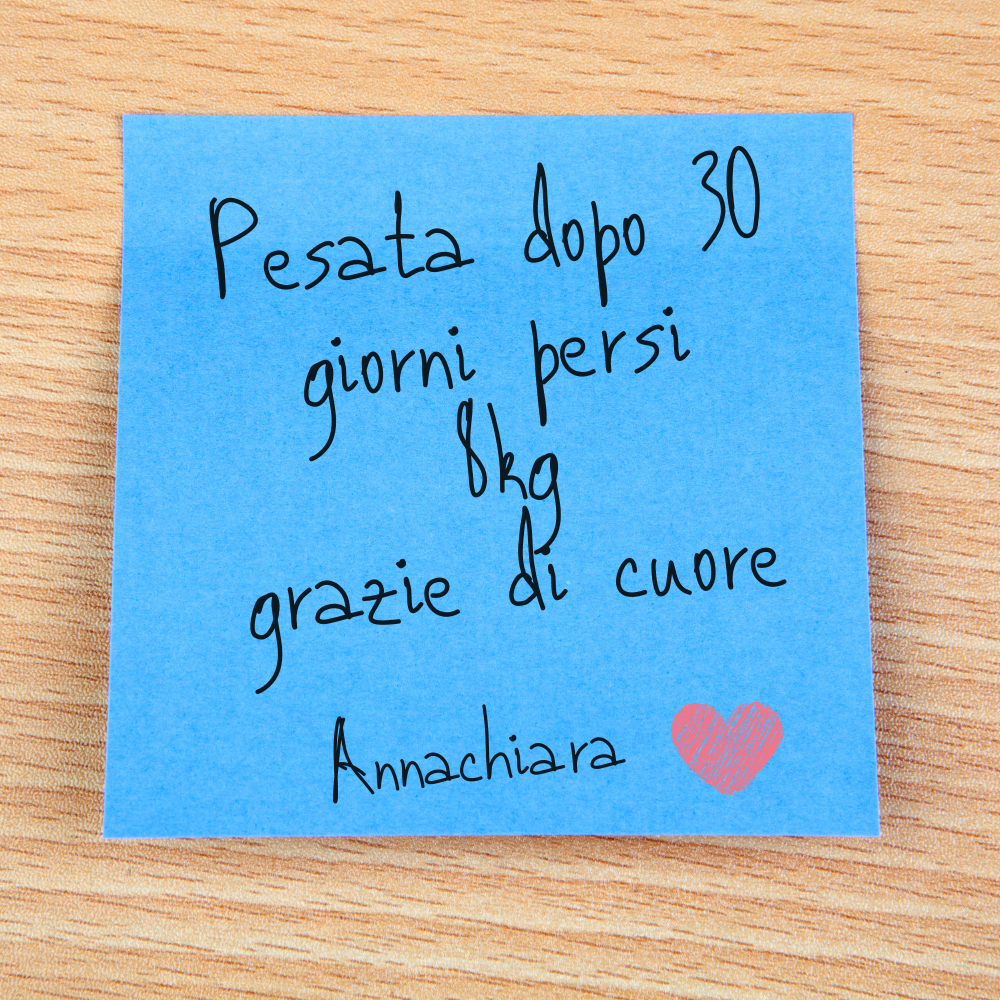 Pesata dopo 30
giorni persi
8kg
grazie di cuore
Annachiara